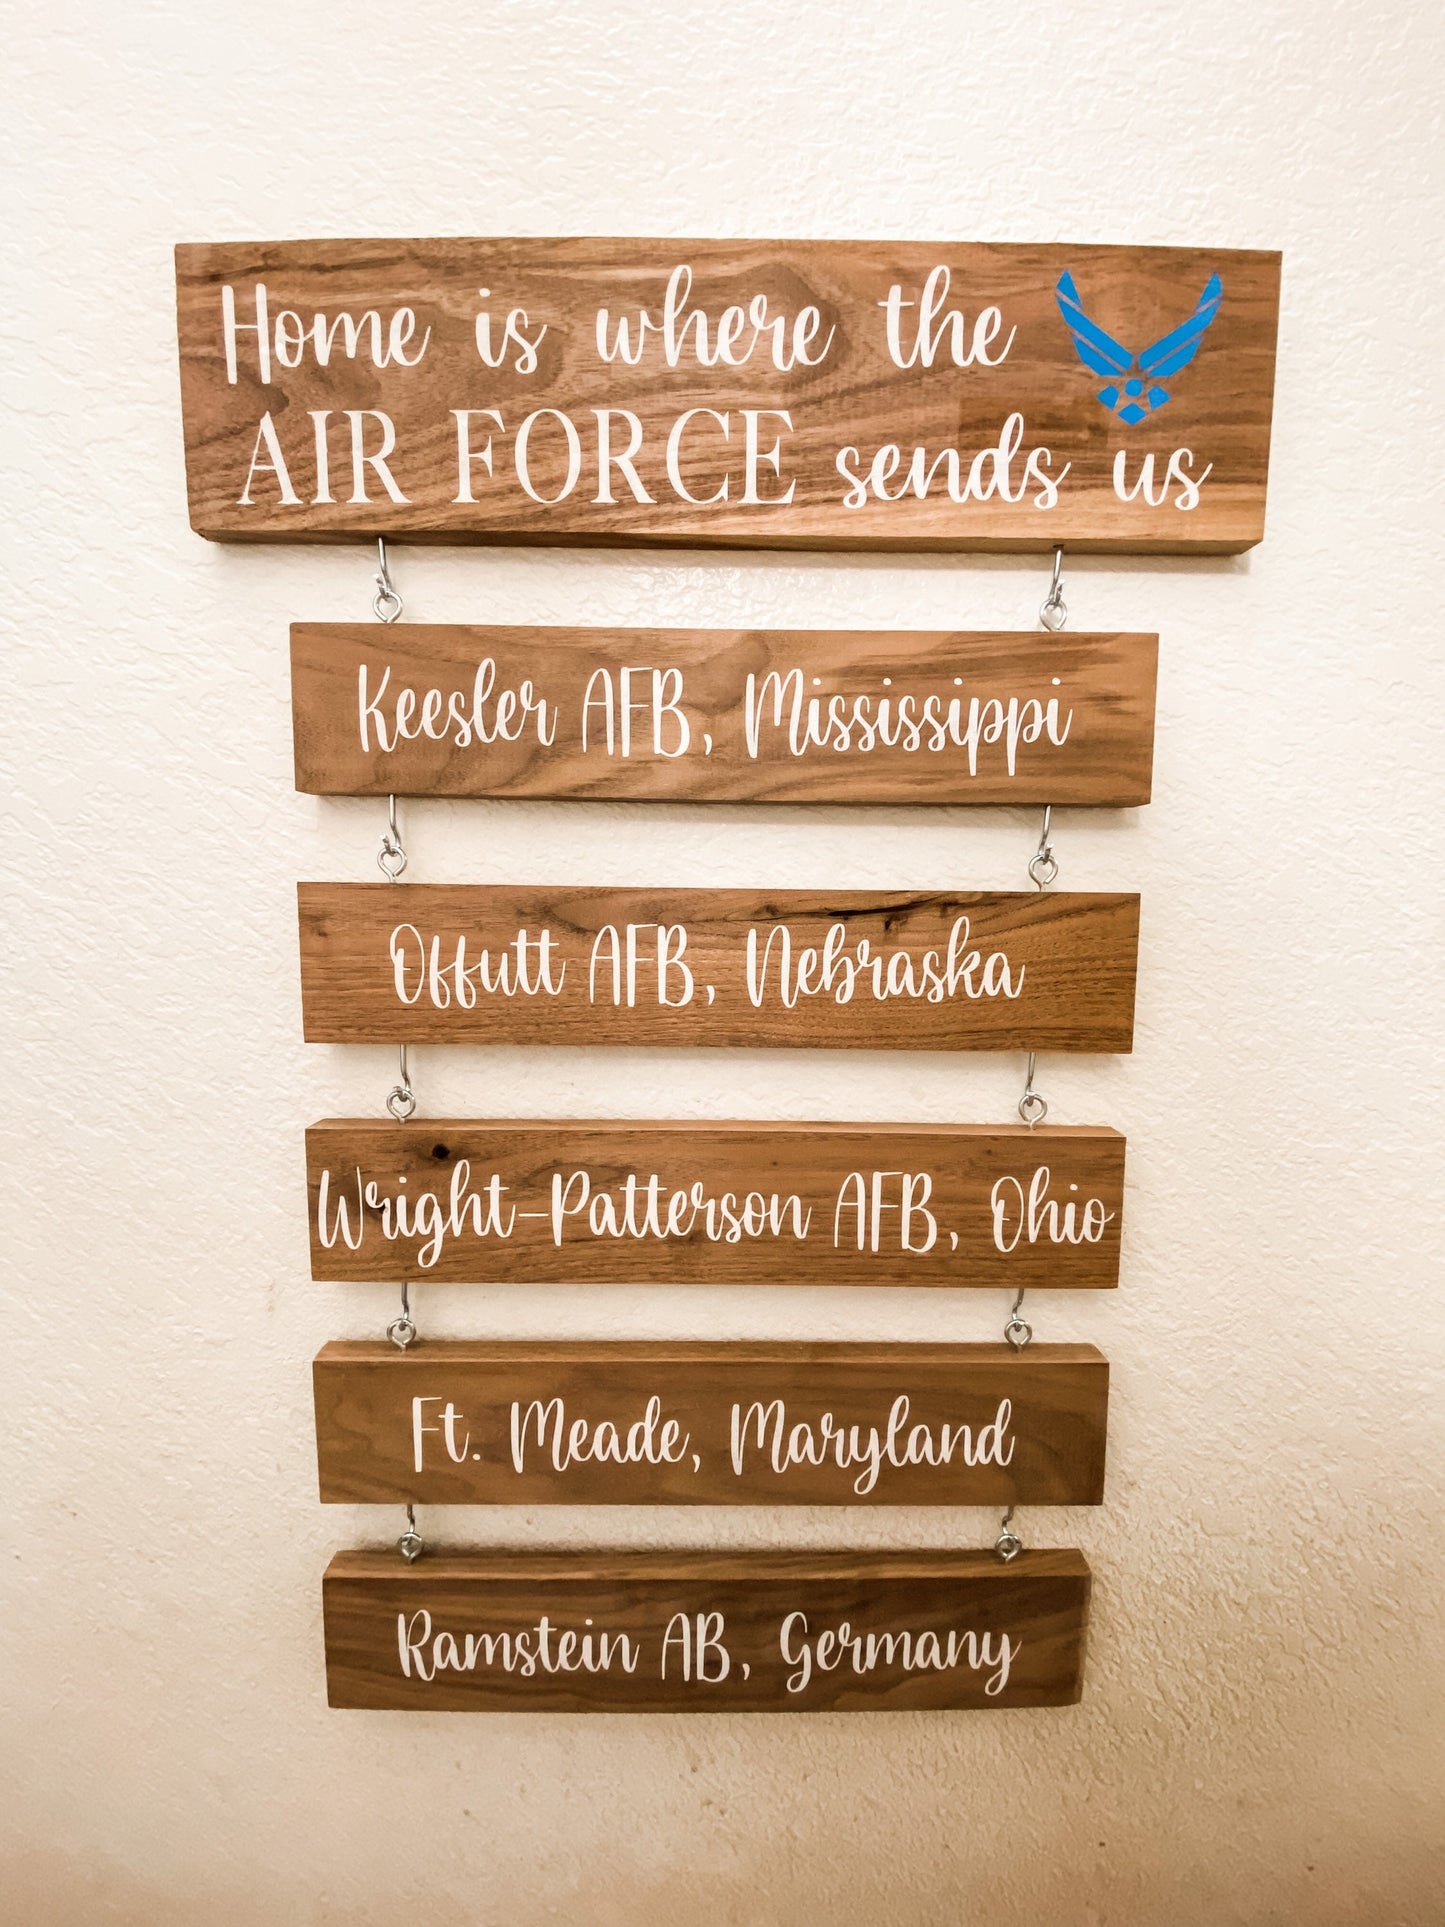 Home is where the
AIR FORCE sends us
Keesler AFB, Mississippi
Offutt AFB, Nebraska
Wright-Patterson AFB, Ohio
Ft. Meade, Maryland
Ramstein AB, Germany